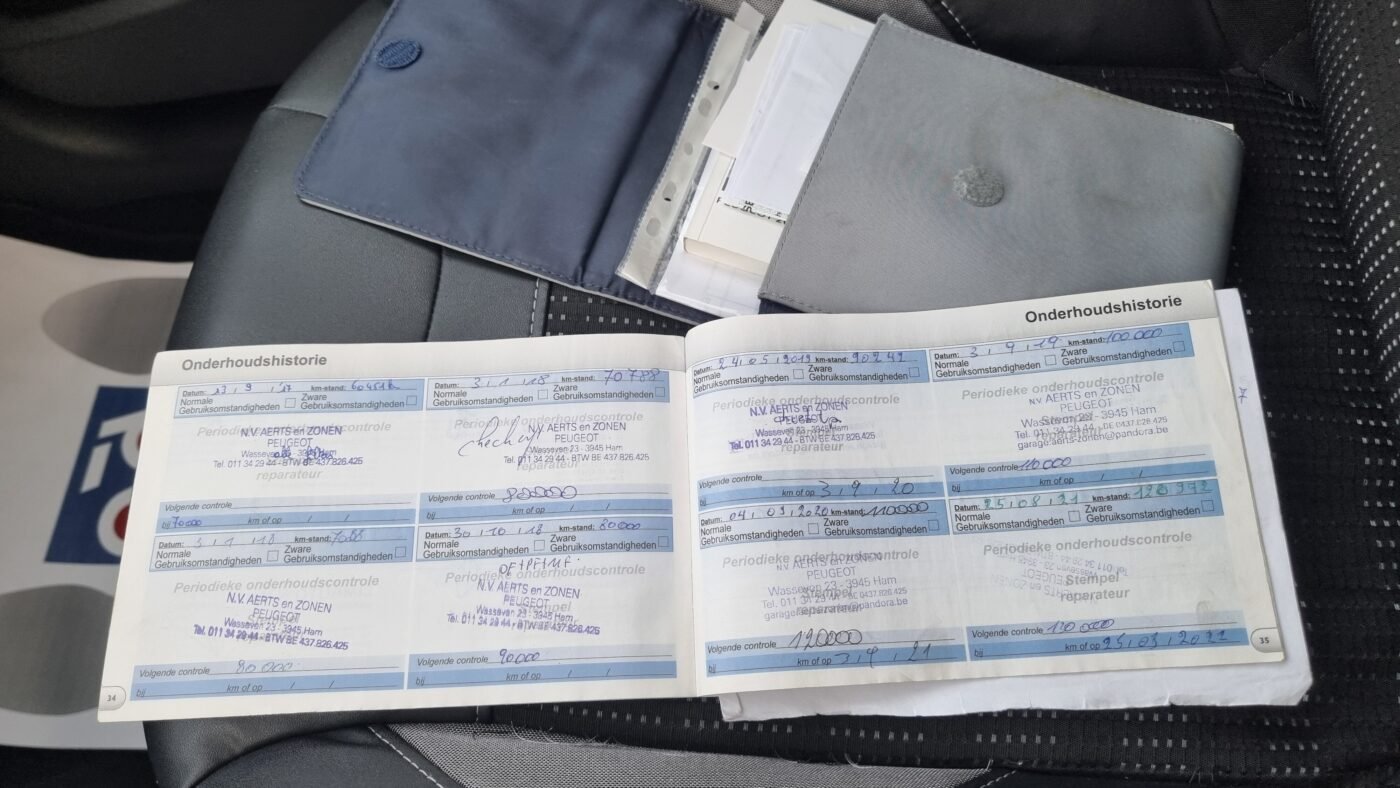 Onderhoudshistorie
Datum: 23, 9, 17 km-stand: 60451
Normale Gebruiksomstandigheden
Zware Gebruiksomstandigheden
Periodieke onderhoudscontrole
N.V. AERTS en ZONEN
PEUGEOT
Wasseven 23 - 3945 Ham
Tel. 011 34 29 44 - BTW BE 437.826.425
reparateur
Volgende controle
bij 70000 km of op / /
Datum: 3, 1, 18 km-stand: 70788
Normale Gebruiksomstandigheden
Zware Gebruiksomstandigheden
Periodieke onderhoudscontrole
check up
N.V. AERTS en ZONEN
PEUGEOT
Wasseven 23 - 3945 Ham
Tel. 011 34 29 44 - BTW BE 437.826.425
Volgende controle 80000
bij km of op / /
Datum: 3, 1, 18 km-stand:
Normale Gebruiksomstandigheden
Zware Gebruiksomstandigheden
Periodieke onderhoudscontrole
N.V. AERTS en ZONEN
PEUGEOT
Wasseven 23 - 3945 Ham
Tel. 011 34 29 44 - BTW BE 437.826.425
Volgende controle 80000
bij km of op / /
Datum: 30, 10, 18 km-stand: 80000
Normale Gebruiksomstandigheden
Zware Gebruiksomstandigheden
Periodieke onderhoudscontrole
N.V. AERTS en ZONEN
PEUGEOT
Wasseven 23 - 3945 Ham
Tel. 011 34 29 44 - BTW BE 437.826.425
Volgende controle 90000
bij km of op / /
34
Onderhoudshistorie
Datum: 24, 05, 2019 km-stand: 90242
Normale Gebruiksomstandigheden
Zware Gebruiksomstandigheden
Periodieke onderhoudscontrole
N.V. AERTS en ZONEN
PEUGEOT
Wasseven 23 - 3945 Ham
Tel. 011 34 29 44 - BTW BE 437.826.425
Volgende controle
bij km of op 3, 9, 20
Datum: 3, 9, 19 km-stand: 100000
Normale Gebruiksomstandigheden
Zware Gebruiksomstandigheden
Periodieke onderhoudscontrole
N.V. AERTS en ZONEN
PEUGEOT
Stempel
Wasseven 23 - 3945 Ham
Tel. 011 34 29 44 - BE 0437.826.425
reparateur
garage.aerts-zonen@pandora.be
Volgende controle 110000
bij km of op / /
Datum: 04, 09, 2020 km-stand: 110000
Normale Gebruiksomstandigheden
Zware Gebruiksomstandigheden
Periodieke onderhoudscontrole
N.V. AERTS en ZONEN
PEUGEOT
Wasseven 23 - 3945 Ham
Stempel
Tel. 011 34 29 44 - BE 0437.826.425
reparateur
garage.aerts-zonen@pandora.be
Volgende controle 120000
bij km of op 3, 9, 21
Datum: 25, 08, 21 km-stand:
Normale Gebruiksomstandigheden
Zware Gebruiksomstandigheden
Periodieke onderhoudscontrole
Stempel
reparateur
Volgende controle 130000
bij km of op 25, 03, 2022
35